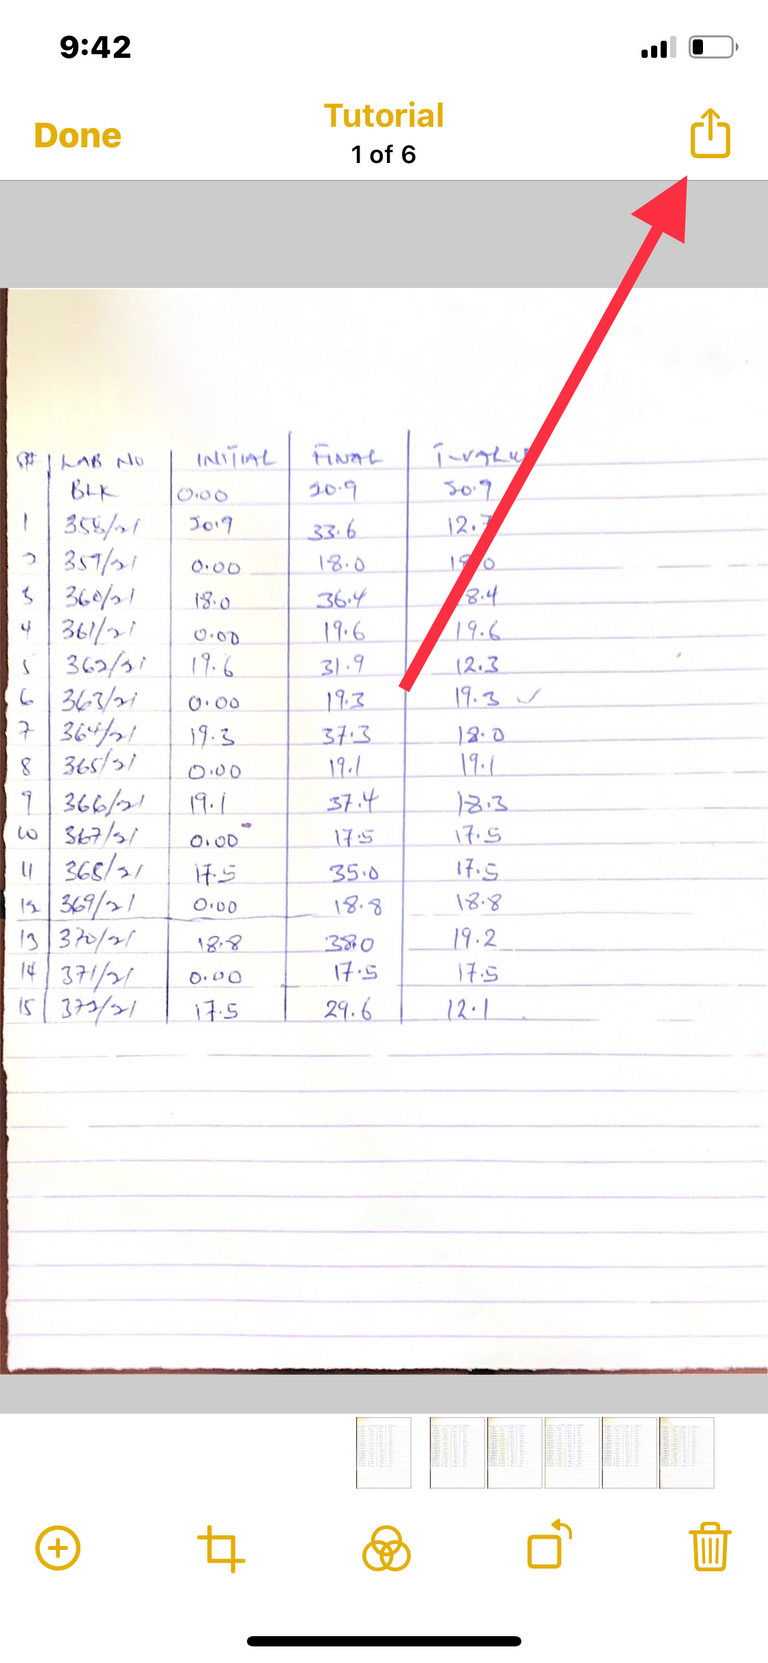 9:42
Done
Tutorial
1 of 6
S# LAB NO INITIAL FINAL T-VALUE
BLK 0.00 20.9 20.9
1 358/21 20.9 33.6 12.7
2 359/21 0.00 18.0 18.0
3 360/21 18.0 36.4 8.4
4 361/21 0.00 19.6 19.6
5 362/21 19.6 31.9 12.3
6 363/21 0.00 19.3 19.3 ✓
7 364/21 19.3 37.3 18.0
8 365/21 0.00 19.1 19.1
9 366/21 19.1 37.4 18.3
10 367/21 0.00 17.5 17.5
11 368/21 17.5 35.0 17.5
12 369/21 0.00 18.8 18.8
13 370/21 18.8 38.0 19.2
14 371/21 0.00 17.5 17.5
15 372/21 17.5 29.6 12.1